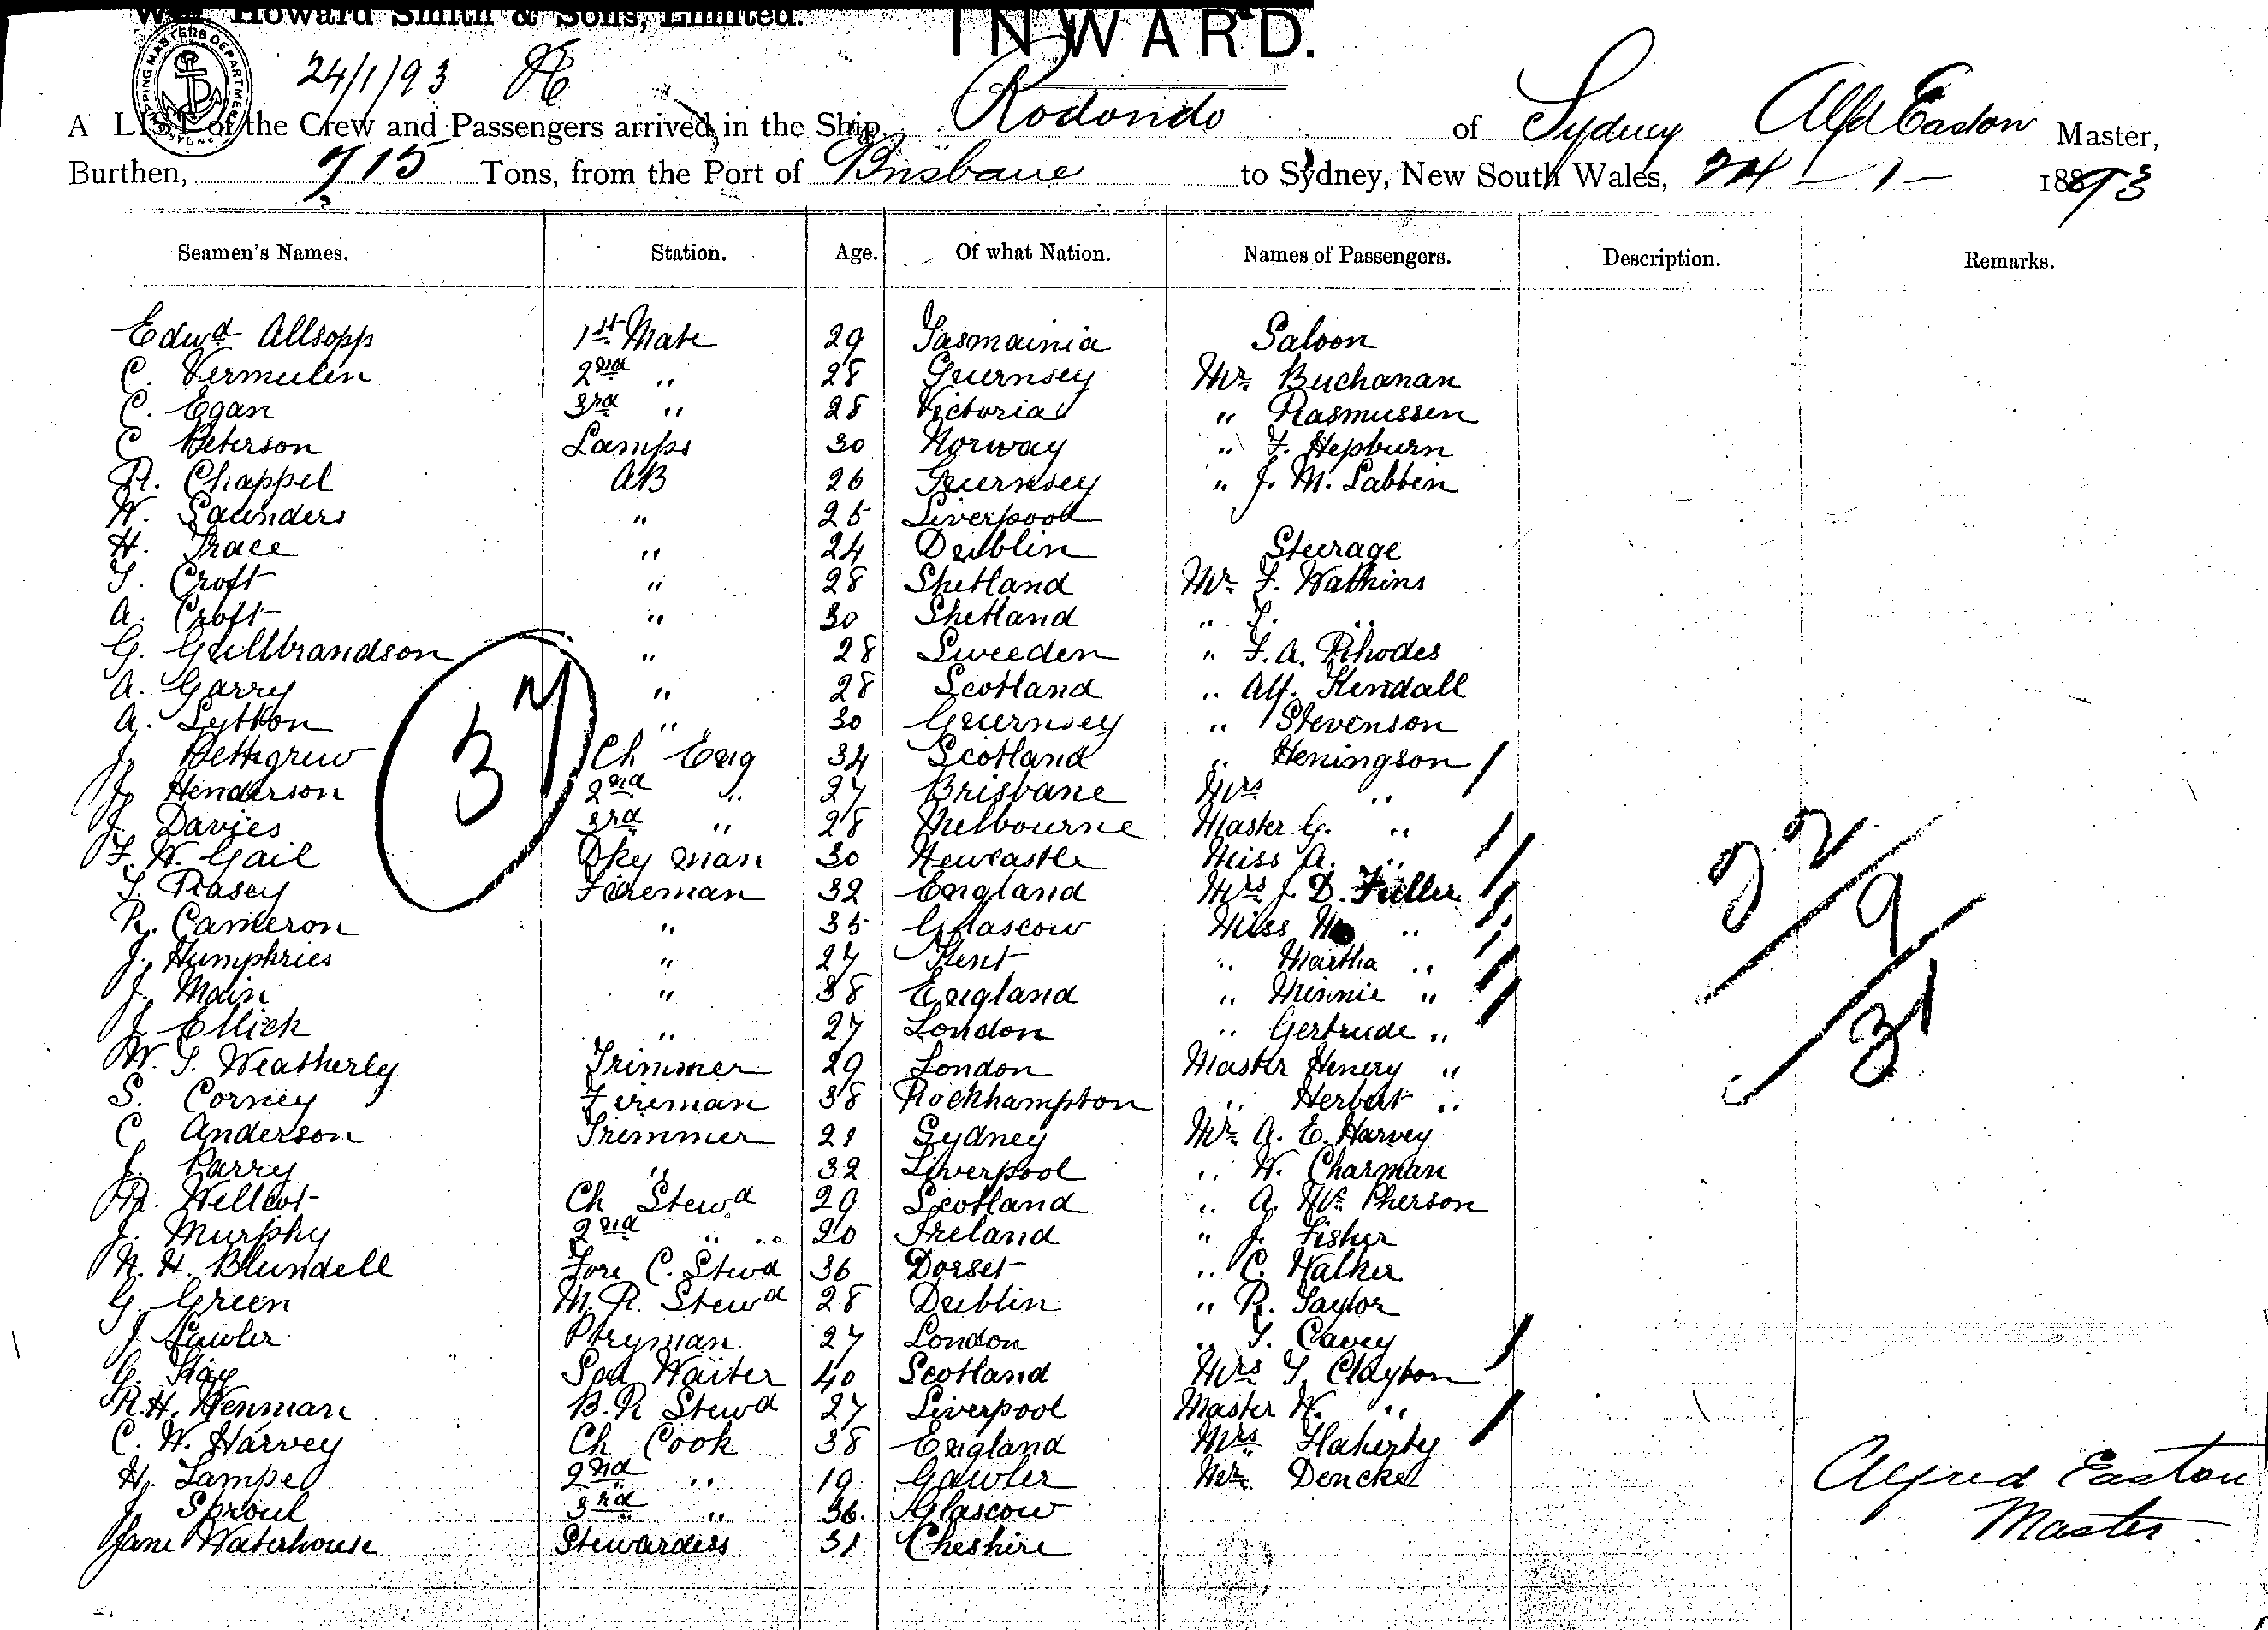 Wm. Howard Smith & Sons, Limited.
INWARD.
SHIPPING MASTERS DEPARTMENT SYDNEY
24/1/93
A LIST of the Crew and Passengers arrived in the Ship Rodondo of Sydney Alfd Easton Master,
Burthen, 715 Tons, from the Port of Brisbane to Sydney, New South Wales, 24 - 1 - 1893
Seamen's Names. Station. Age. Of what Nation. Names of Passengers. Description. Remarks.
Edwd Allsopp 1st Mate 29 Tasmainia Saloon
C. Vermeulen 2nd " 28 Guernsey Mr Buchanan
C. Egan 3rd " 28 Victoria " Rasmussen
C Peterson Lamps 30 Norway " F. Hepburn
R. Chappel AB 26 Guernsey " J. M. Labbin
W. Saunders " 25 Liverpool
H. Trace " 24 Dublin Steerage
T. Croft " 28 Shetland Mr F. Watkins
A. Croft " 30 Shetland " T. "
G. Gullbrandson " 28 Sweeden " F. A. Rhodes
A. Garry " 28 Scotland " Alf. Kendall
A. Lytton " 30 Guernsey " Stevenson
J. Pettigrew Ch Eng 34 Scotland " Heningson /
J. Henderson 2nd " 27 Brisbane Mrs "
J. Davies 3rd " 28 Melbourne Master G. "
F. W. Gail Dky man 30 Newcastle Miss A. "
T. Pasey Fireman 32 England Mrs J. D. Fuller
R. Cameron " 35 Glascow Miss "
J. Humphries " 27 Kent " Martha "
J. Main " 38 England " Minnie "
J. Ellick " 27 London " Gertrude "
W. T. Weatherly Trimmer 29 London Master Henery "
S. Corney Fireman 38 Rockhampton " Herbert "
C. Anderson Trimmer 21 Sydney Mr A. E. Harvey
J. Parry " 32 Liverpool " W. Charman
R. Wellcot Ch Stewd 29 Scotland " A. McPherson
J. Murphy 2nd " " 20 Ireland " J. Fisher
N. H. Blundell Fore C. Stewd 36 Dorset " C. Walker
G. Green M. R. Stewd 28 Dublin " R. Taylor
J. Lawler Ptryman 27 London " T. Cavey
G. Kay Sal Waiter 40 Scotland Mrs T. Clayton
R. H. Wenman B. R Stewd 27 Liverpool Master W. "
C. W. Harvey Ch Cook 38 England Mrs Flaherty
H. Lampe 2nd " 19 Gawler Mr Dencke
J. Sproul 3rd " 36 Glascow
Jane Waterhouse Stewardess 31 Cheshire
37
22/9/31
Alfred Easton
Master